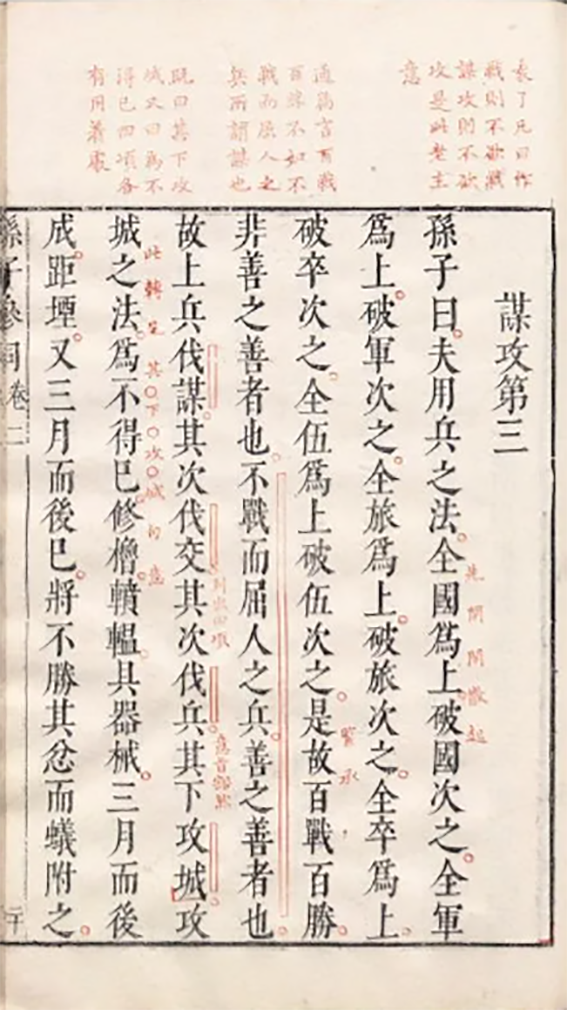 袁了凡曰作
戰則不欲戰
謀攻則不欲
攻是此老主
意
通篇言百戰
百勝不如不
戰而屈人之
兵所謂謀也
既曰其下攻
城又曰爲不
得已四項各
有用着處
謀攻第三
孫子曰。夫用兵之法。全國爲上。破國次之。全軍
爲上。破軍次之。全旅爲上。破旅次之。全卒爲上。
破卒次之。全伍爲上破伍次之。是故百戰百勝。
非善之善者也。不戰而屈人之兵。善之善者也。
故上兵伐謀。其次伐交。其次伐兵。其下攻城。攻
城之法。爲不得已。修櫓。轒轀。具器械。三月而後
成。距堙。又三月而後已。將不勝其忿而蟻附之。
先閒閒散起
緊承
列出四項
此轉完其下攻城句意
孫子參同卷二
二十